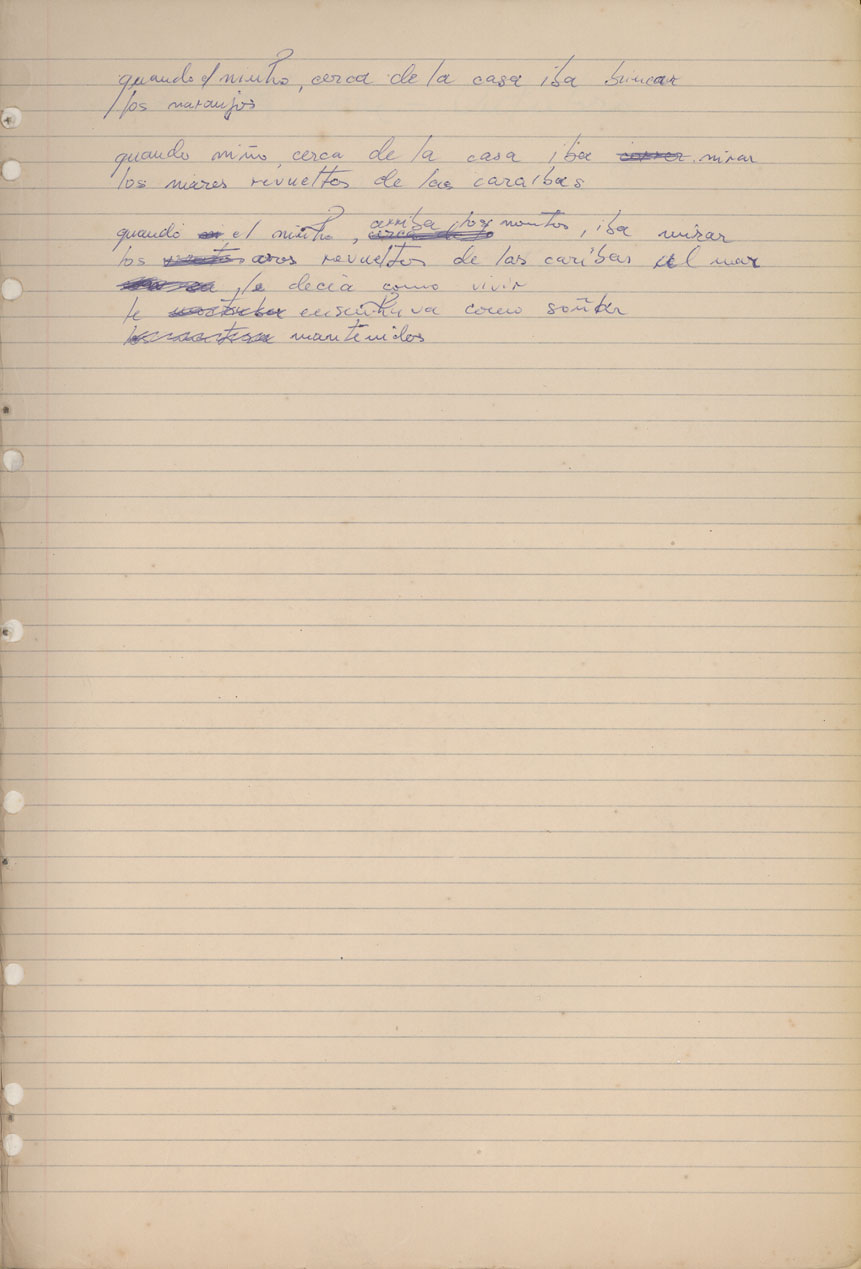 quando el ninho, cerca de la casa iba brincar
los naranjos
quando niño, cerca de la casa iba correr mirar
los mares revueltos de las caraibas
quando el ninho, arriba los montes, iba mirar
los aros revueltos de las caribas el mar
le decia como vivir
le ensinhava como soñar
mantenidos